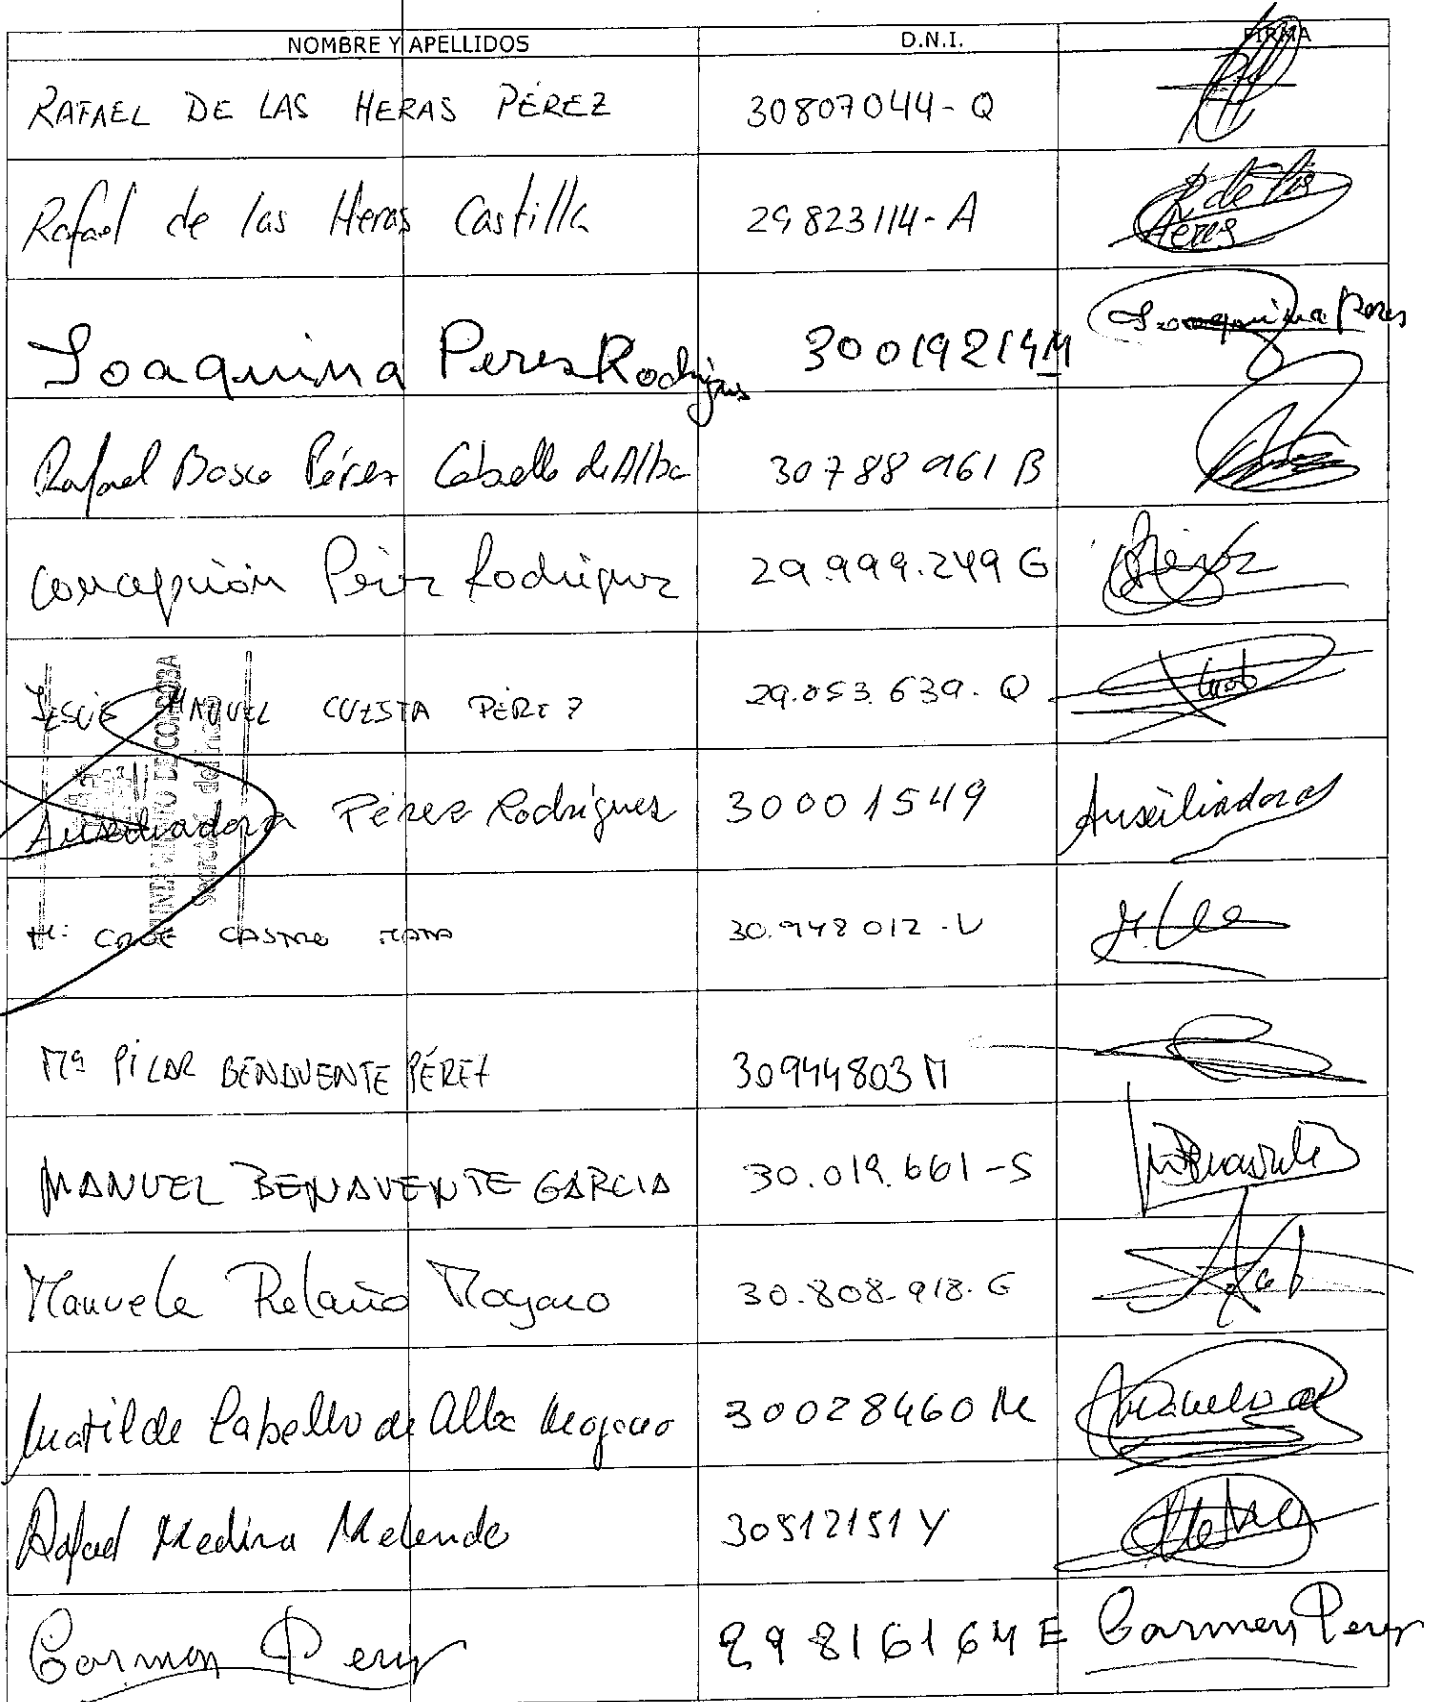 NOMBRE Y APELLIDOS D.N.I. FIRMA
RAFAEL DE LAS HERAS PÉREZ 30807044-Q
Rafael de las Heras Castilla 29823114-A R de las Heras
Joaquina Peres Rodrigues 30019214M Joaquina Peres
Rafael Bosco Pérez Cabello de Alba 30788961B
Concepción Pérez Rodríguez 29.999.249 G Pérez
JESÚS MANUEL CUESTA PÉREZ 29.053.639.Q
Auxiliadora Pérez Rodríguez 30001549 Auxiliadora
Mª CRUZ CASTRO 30.948012-V
Mª PILAR BENAVENTE PÉREZ 30944803M
MANUEL BENAVENTE GARCIA 30.019.661-S
Manuela Relaño Moyano 30.808.918.G
Matilde Cabello de Alba Moyano 30028460M
Rafael Medina Melendo 30512151Y
Carmen Perez 29816164E Carmen Perez